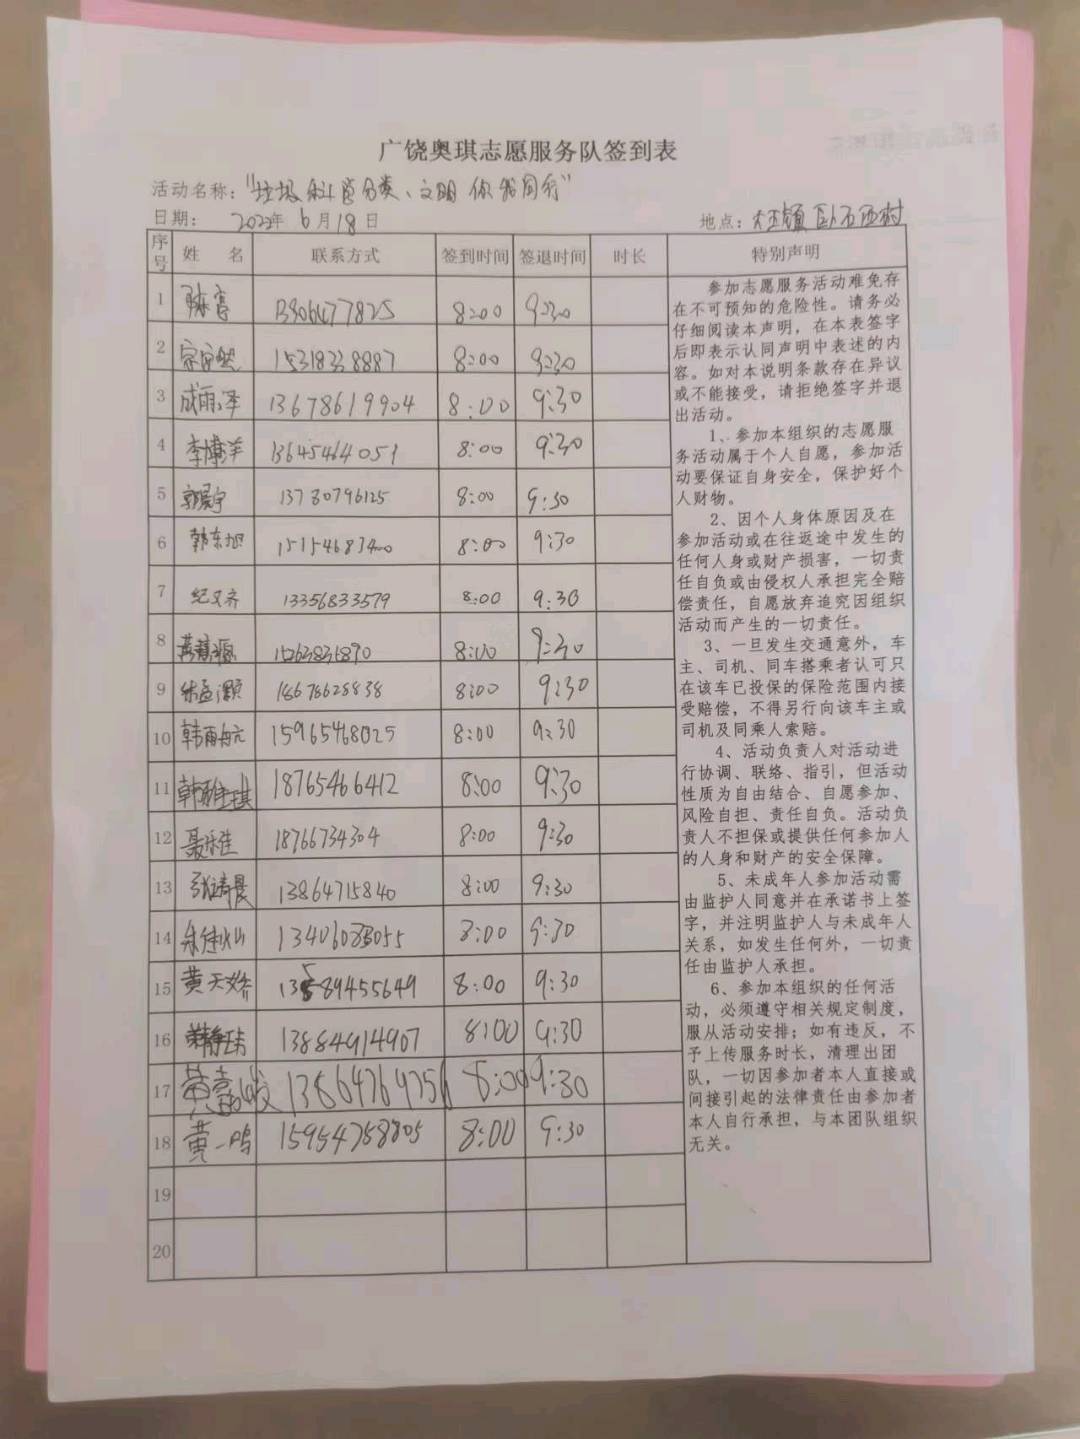 广饶奥琪志愿服务队签到表
活动名称：“垃圾科学分类、文明你我同行”
日期： 2022年 6月18日 地点：大王镇卧石西村
序号 姓 名 联系方式 签到时间 签退时间 时长 特别声明
1 8:00 9:30
2 15318338887 8:00 9:30
3 成雨泽 13678619904 8:00 9:30
4 李博洋 13645464051 8:00 9:30
5 郭晨宇 13780796125 8:00 9:30
6 韩东旭 15154683400 8:00 9:30
7 纪文齐 13356833579 8:00 9:30
8 8:00 9:30
9 18678628838 8:00 9:30
10 15965468025 8:00 9:30
11 韩雅琪 18765466412 8:00 9:30
12 聂乐佳 18766734304 8:00 9:30
13 13864715840 8:00 9:30
14 8:00 9:30
15 黄天娇 13589455649 8:00 9:30
16 13884914907 8:00 9:30
17 8:00 9:30
18 黄一鸣 15954758805 8:00 9:30
19
20
参加志愿服务活动难免存
在不可预知的危险性。请务必
仔细阅读本声明，在本表签字
后即表示认同声明中表述的内
容。如对本说明条款存在异议
或不能接受，请拒绝签字并退
出活动。
1、参加本组织的志愿服
务活动属于个人自愿，参加活
动要保证自身安全，保护好个
人财物。
2、因个人身体原因及在
参加活动或在往返途中发生的
任何人身或财产损害，一切责
任自负或由侵权人承担完全赔
偿责任，自愿放弃追究因组织
活动而产生的一切责任。
3、一旦发生交通意外，车
主、司机、同车搭乘者认可只
在该车已投保的保险范围内接
受赔偿，不得另行向该车主或
司机及同乘人索赔。
4、活动负责人对活动进
行协调、联络、指引，但活动
性质为自由结合、自愿参加、
风险自担、责任自负。活动负
责人不担保或提供任何参加人
的人身和财产的安全保障。
5、未成年人参加活动需
由监护人同意并在承诺书上签
字，并注明监护人与未成年人
关系，如发生任何外，一切责
任由监护人承担。
6、参加本组织的任何活
动，必须遵守相关规定制度，
服从活动安排；如有违反，不
予上传服务时长，清理出团
队，一切因参加者本人直接或
间接引起的法律责任由参加者
本人自行承担，与本团队组织
无关。